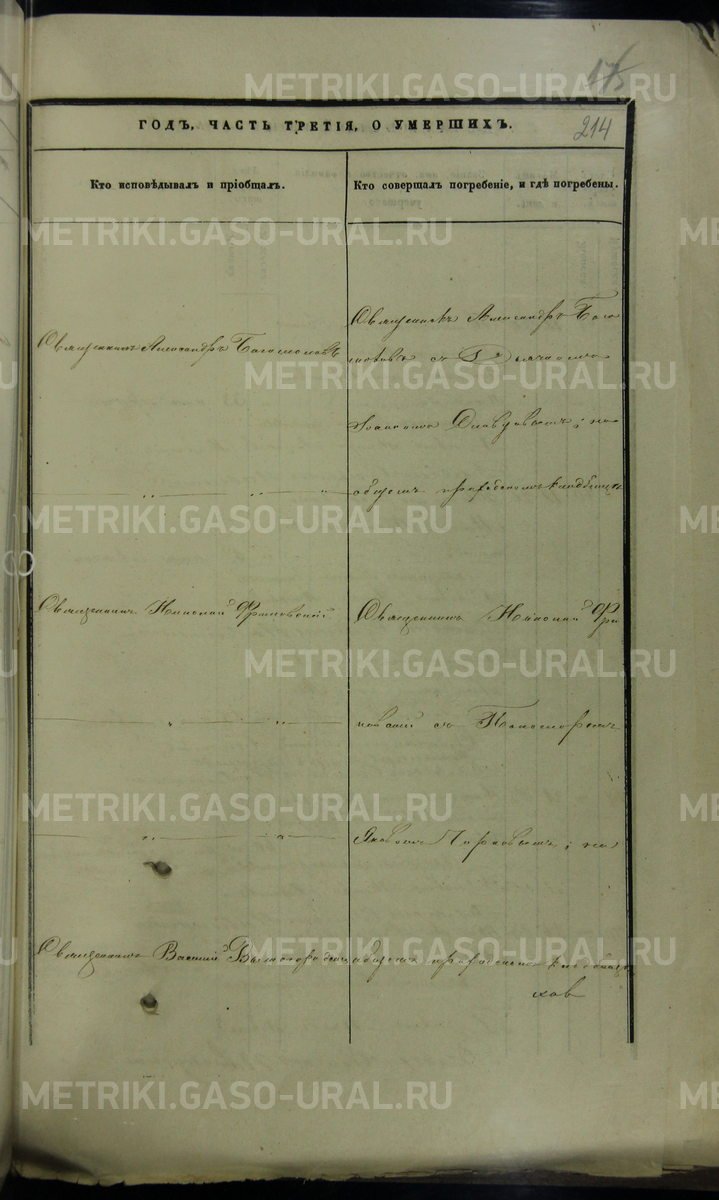 175
ГОДЪ, ЧАСТЬ ТРЕТІЯ, О УМЕРШИХЪ.
214
Кто исповѣдывалъ и пріобщалъ.
Кто совершалъ погребеніе, и гдѣ погребены.
Священникъ Александръ Богомоловъ
Священникъ Александръ Бого
моловъ съ Дьячкомъ
Іоанномъ Давыдовымъ; на
общемъ приходскомъ кладбищѣ
Священникъ Николай
Священникъ Николай
съ Пономаремъ
Яковомъ на
Священникъ Василій
общемъ приходскомъ кладбищѣ
METRIKI.GASO-URAL.RU